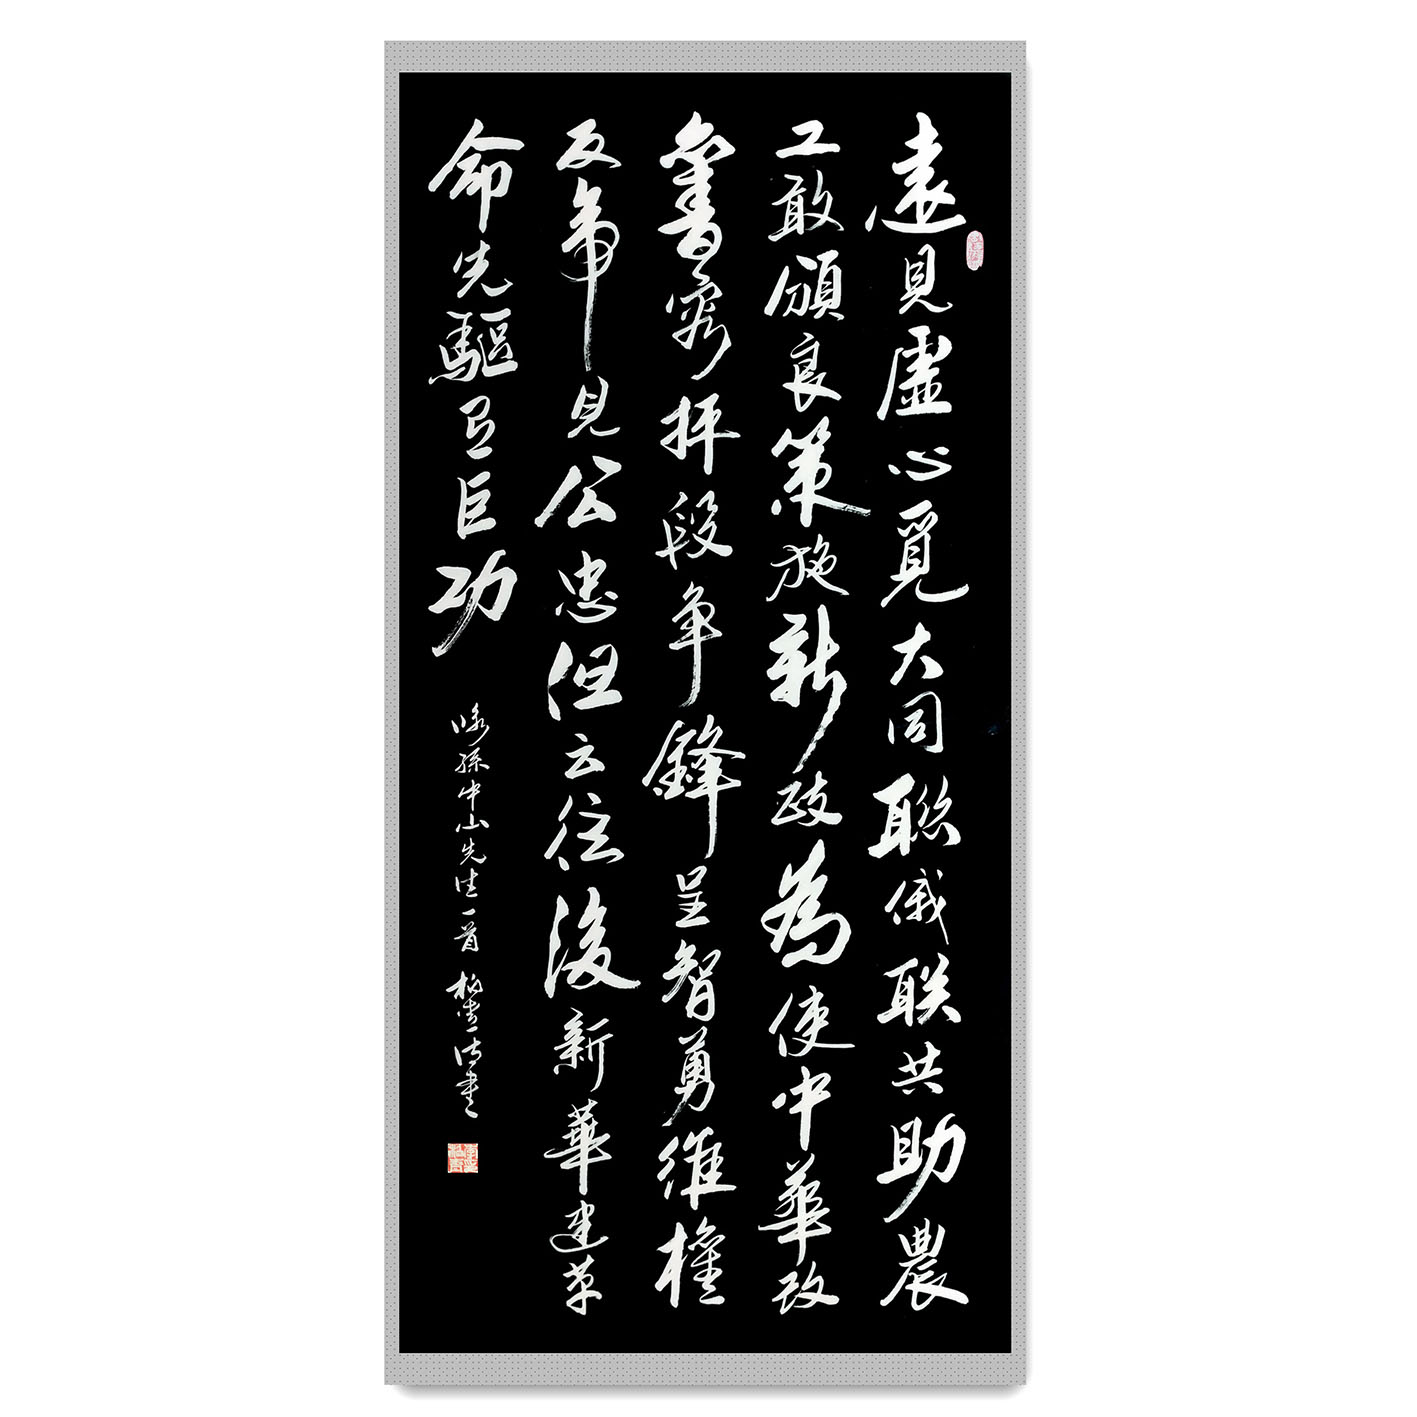 遠見虛心覓大同聯俄联共助農
工敢頒良策施新政為使中華改
舊容抨段爭鋒呈智勇維權
反帝見公忠但云往後新華建革
命先驅巨功
咏孫中山先生一首 書